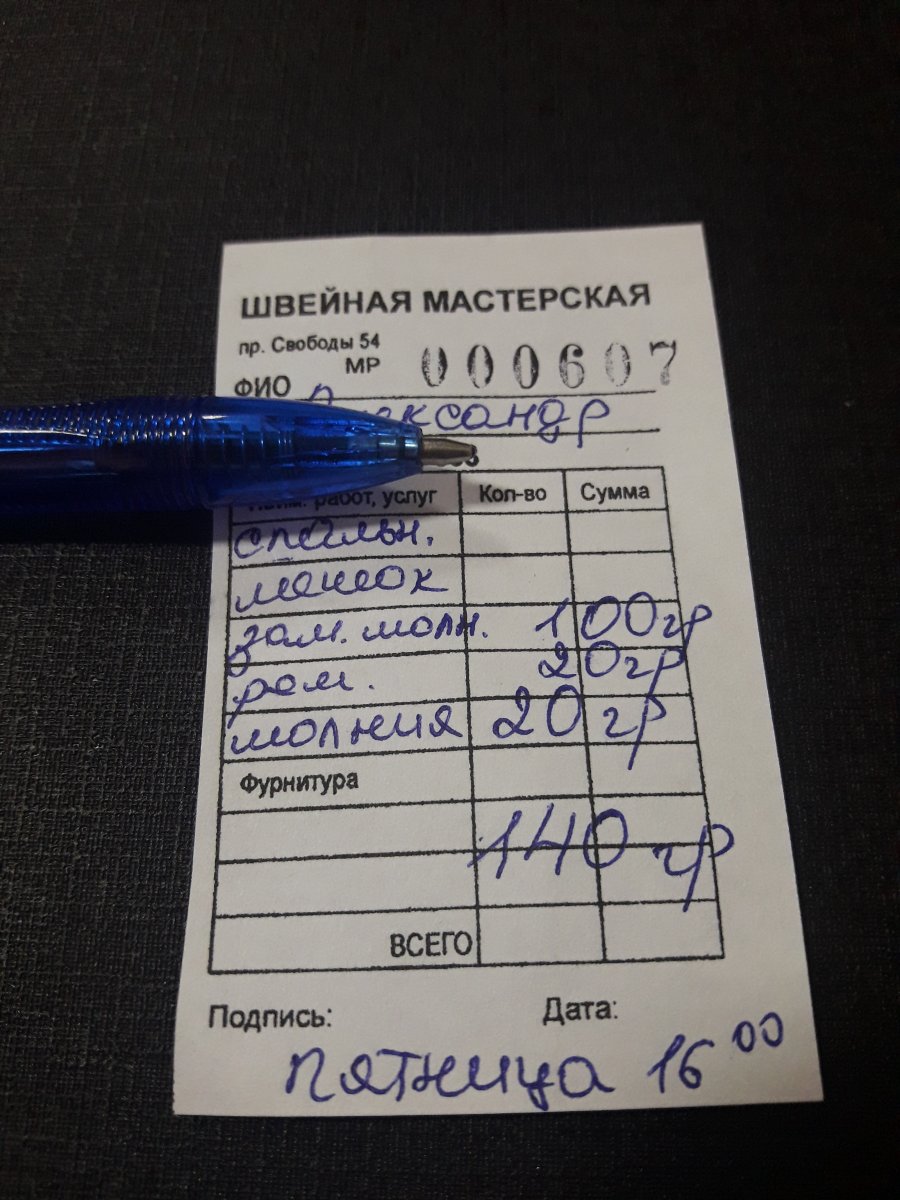 ШВЕЙНАЯ МАСТЕРСКАЯ
пр. Свободы 54
МР 000607
ФИО Александр
Наим. работ, услуг Кол-во Сумма
спальн.
мешок
зам. молн. 100гр
рем. 20гр
молния 20 гр
Фурнитура
140 гр
ВСЕГО
Подпись: Дата:
пятница 16 00